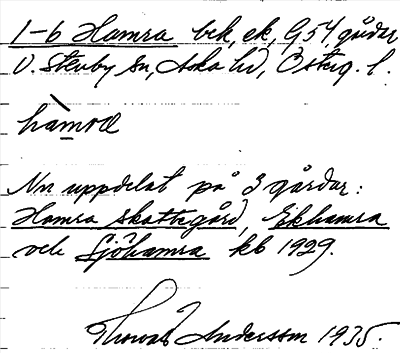 1-6 Hamra bck, ek, G54 gårdar
V. Stenby sn, Aska hd, Österg. l.
hàmra
Nu uppdelat på 3 gårdar:
Hamra skattegård, Ekhamra
och Sjöhamra kb 1929.
Thorvald Andersson 1935.